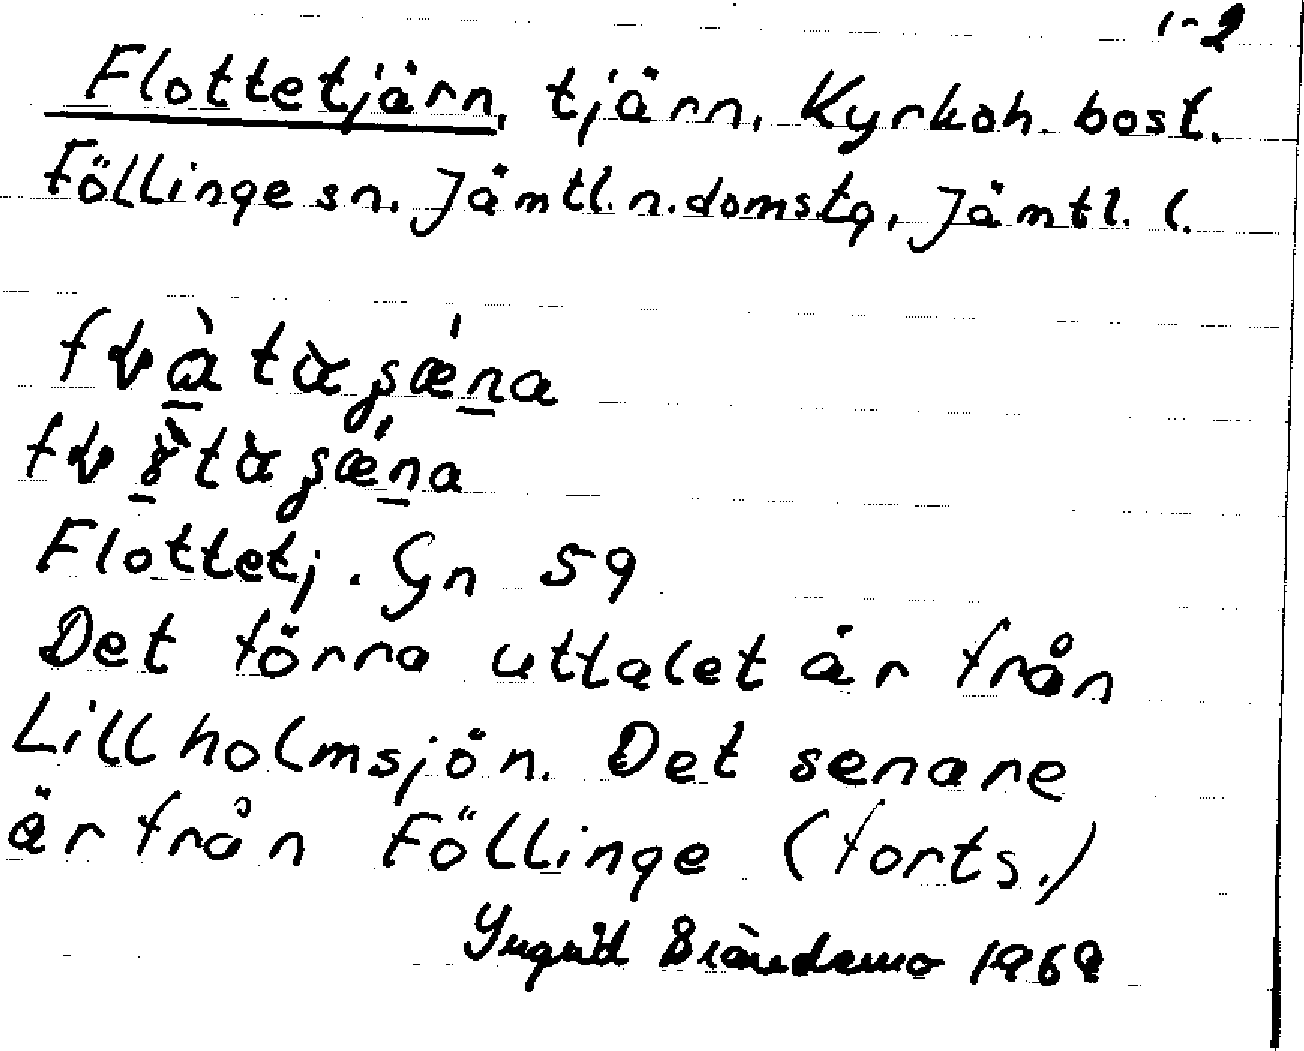 1-2
Flottetjärn, tjärn, Kyrkoh. bost.
Föllinge sn. Jämtl. n. domstg, Jämtl. l.
Flottetj. Gn 59
Det förra uttalet är från
Lillholmsjön. Det senare
är från Föllinge (forts.)
Ingrid 1969